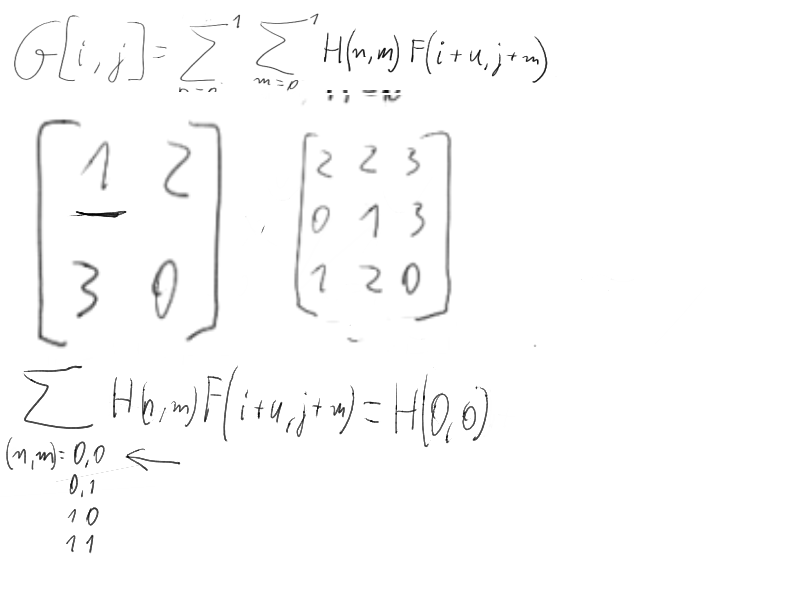 G[i,j] = Σ¹ₙ₌₀ Σ¹ₘ₌₀ H(n,m) F(i+u,j+m)
1 2
3 0
2 2 3
0 1 3
1 2 0
Σ H(n,m)F(i+u,j+m) = H(0,0)
(n,m)= 0,0 ←
0,1
1 0
1 1